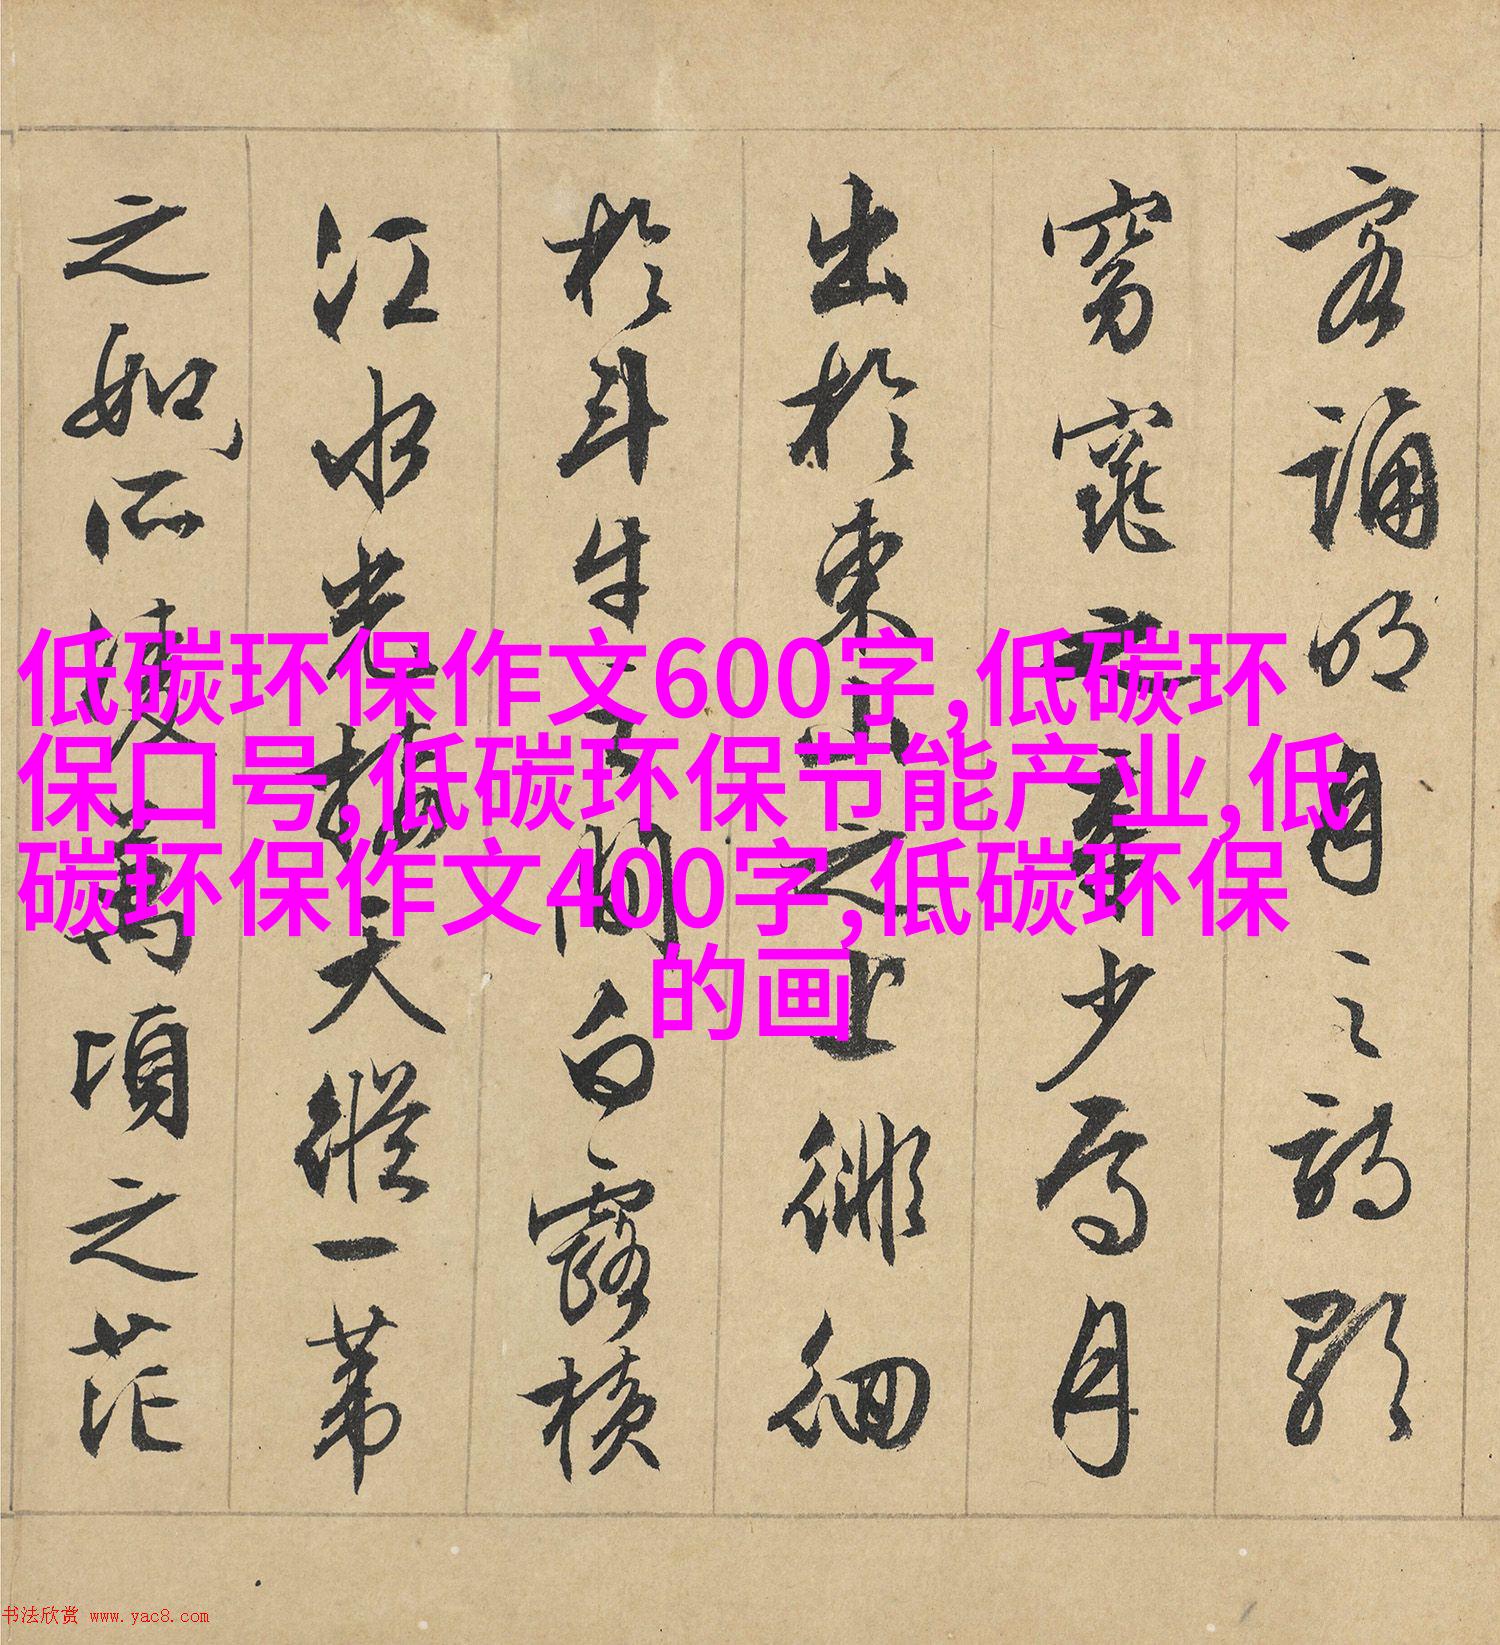 客誦明月之詩歌
窈窕之章少焉月
出於東山之上徘徊
於斗牛之間白露橫
江水光接天縱一葦
之如所淩萬頃之茫
低碳环保作文600字,低碳环
保口号,低碳环保节能产业,低
碳环保作文400字,低碳环保
的画
书法欣赏 www.yac8.com